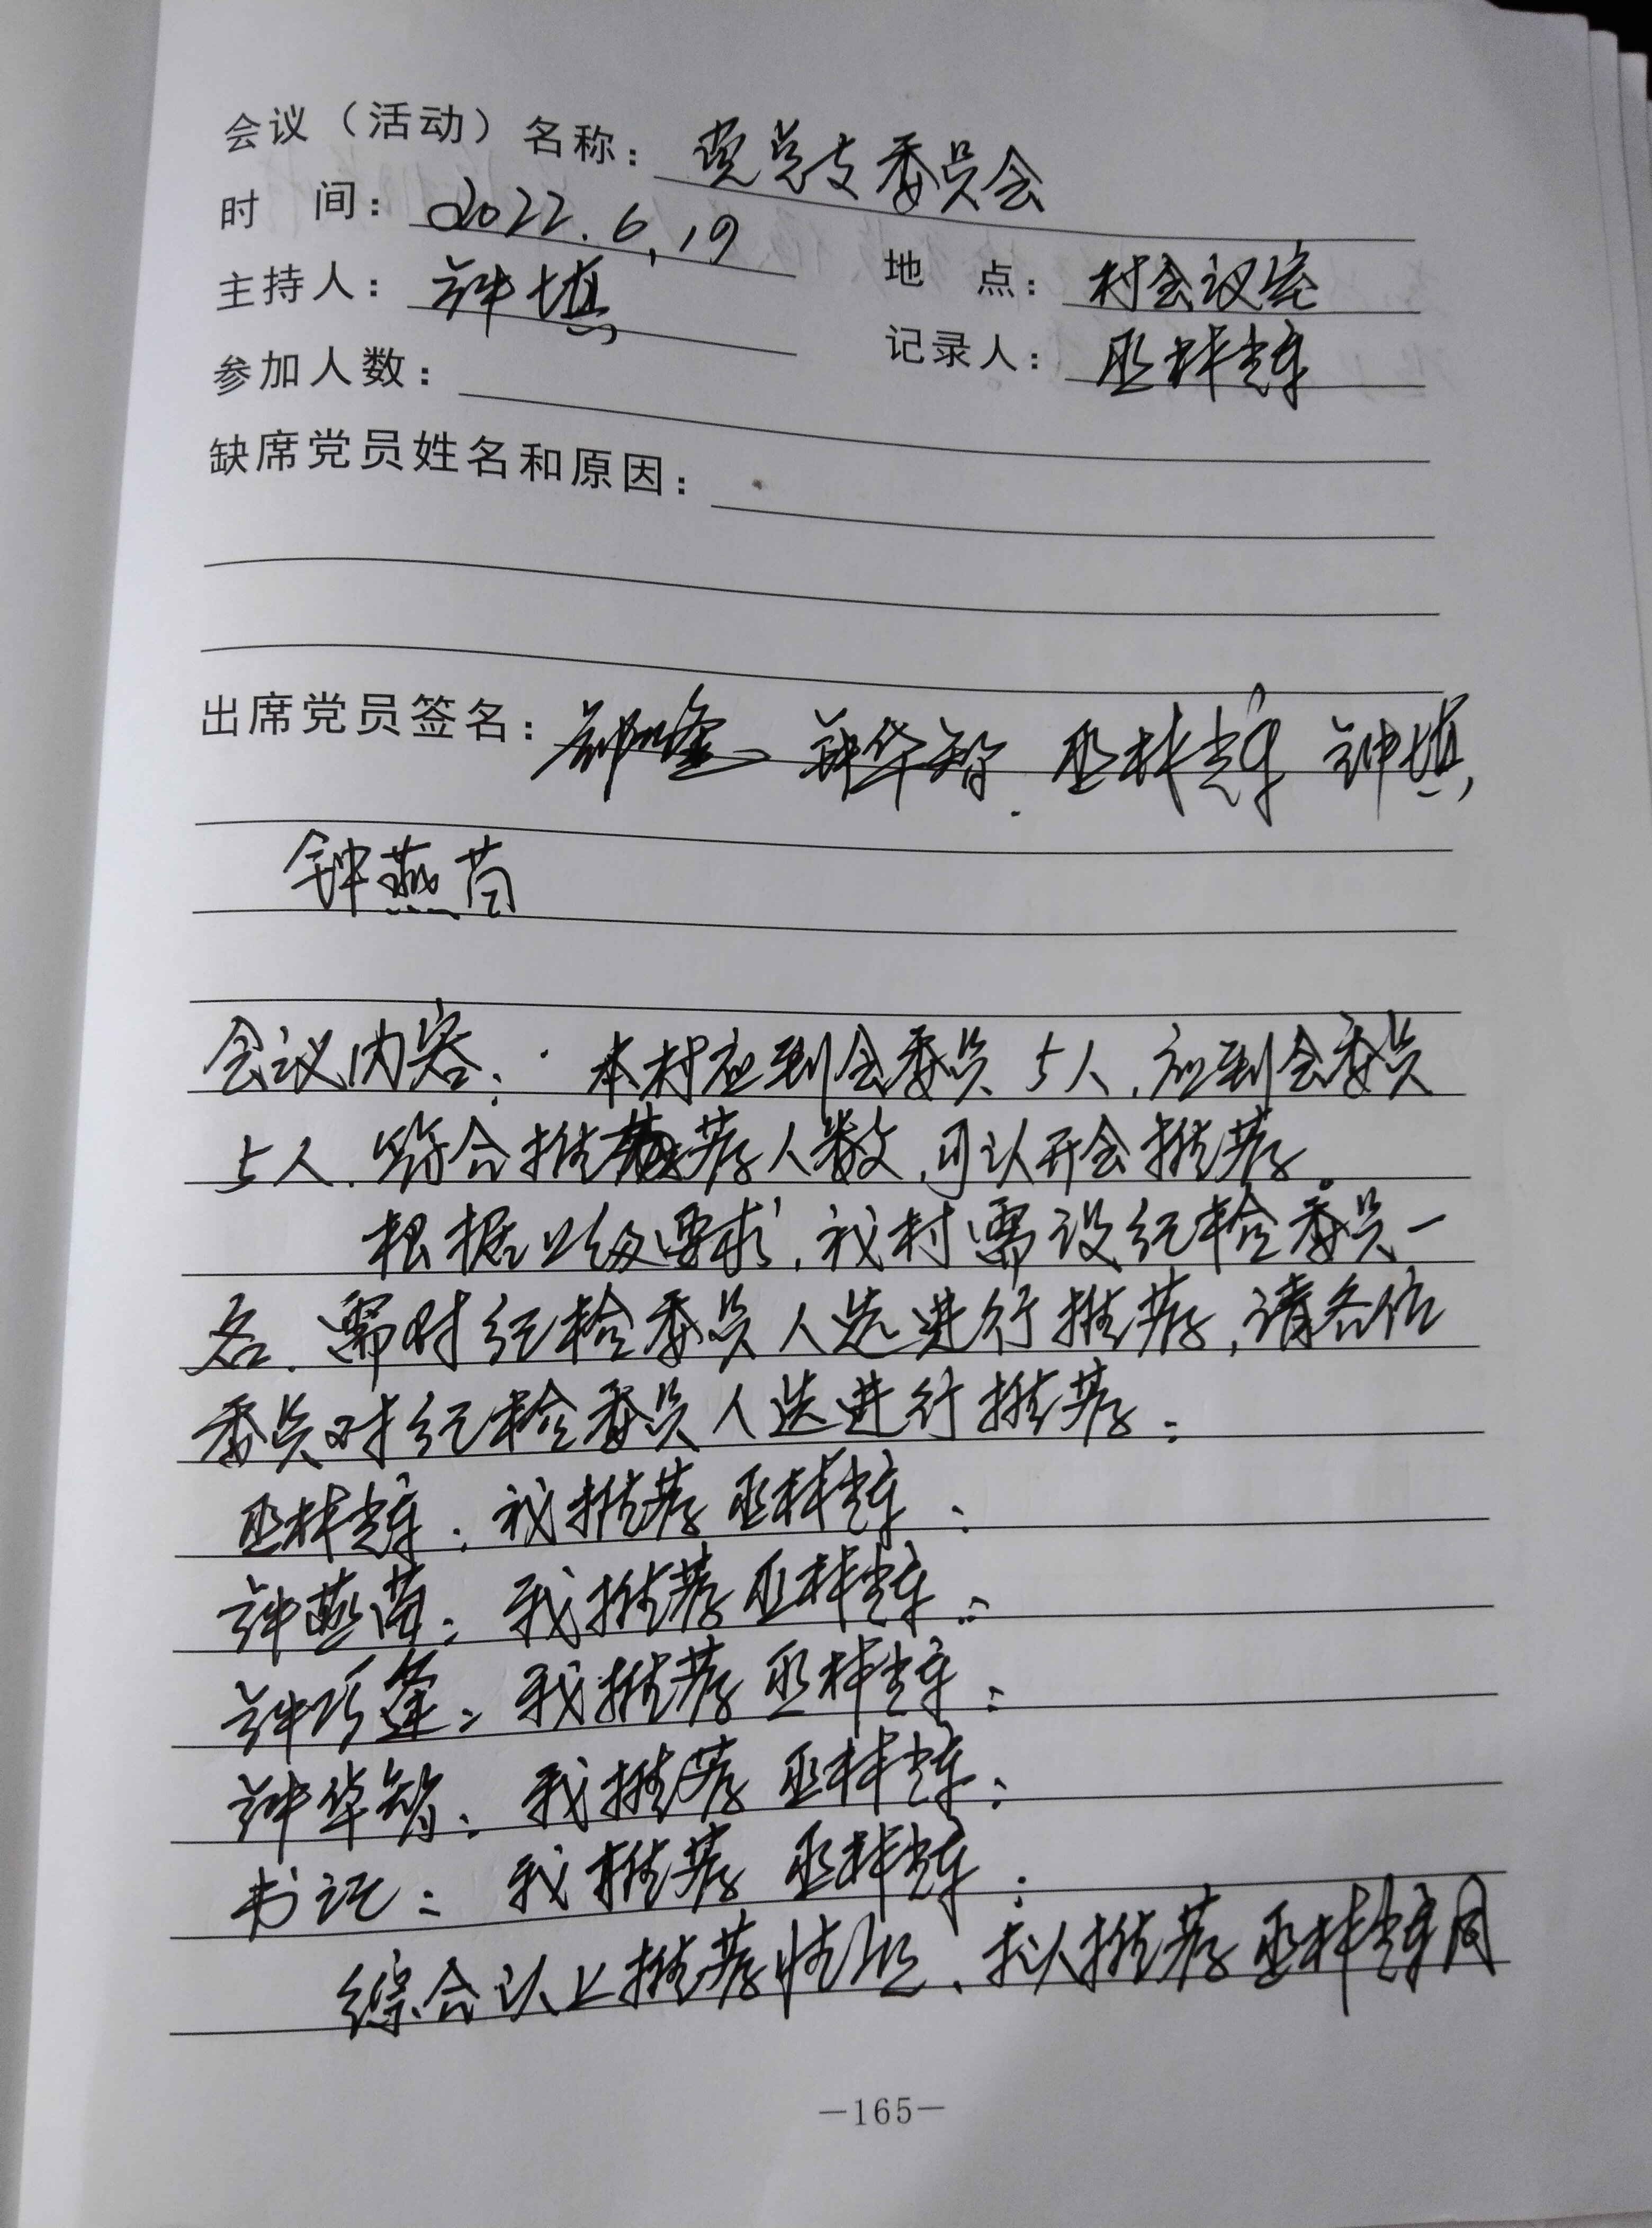 会议（活动）名称：党总支委员会
时　间：2022.6.19
地　点：村会议室
主持人：钟填
记录人：巫林
参加人数：
缺席党员姓名和原因：
出席党员签名：钟华智 巫林 钟填
钟燕苗
会议内容：本村应到会委员5人，应到会委员
5人，符合推荐人数，可以开会推荐。
根据上级要求，我村需设纪检委员一
名，需对纪检委员人选进行推荐，请各位
委员对纪检委员人选进行推荐：
巫林：我推荐巫林；
钟燕苗：我推荐巫林；
钟巧逢：我推荐巫林；
钟华智：我推荐巫林；
书记：我推荐巫林；
综合以上推荐情况，拟推荐巫林同
—165—